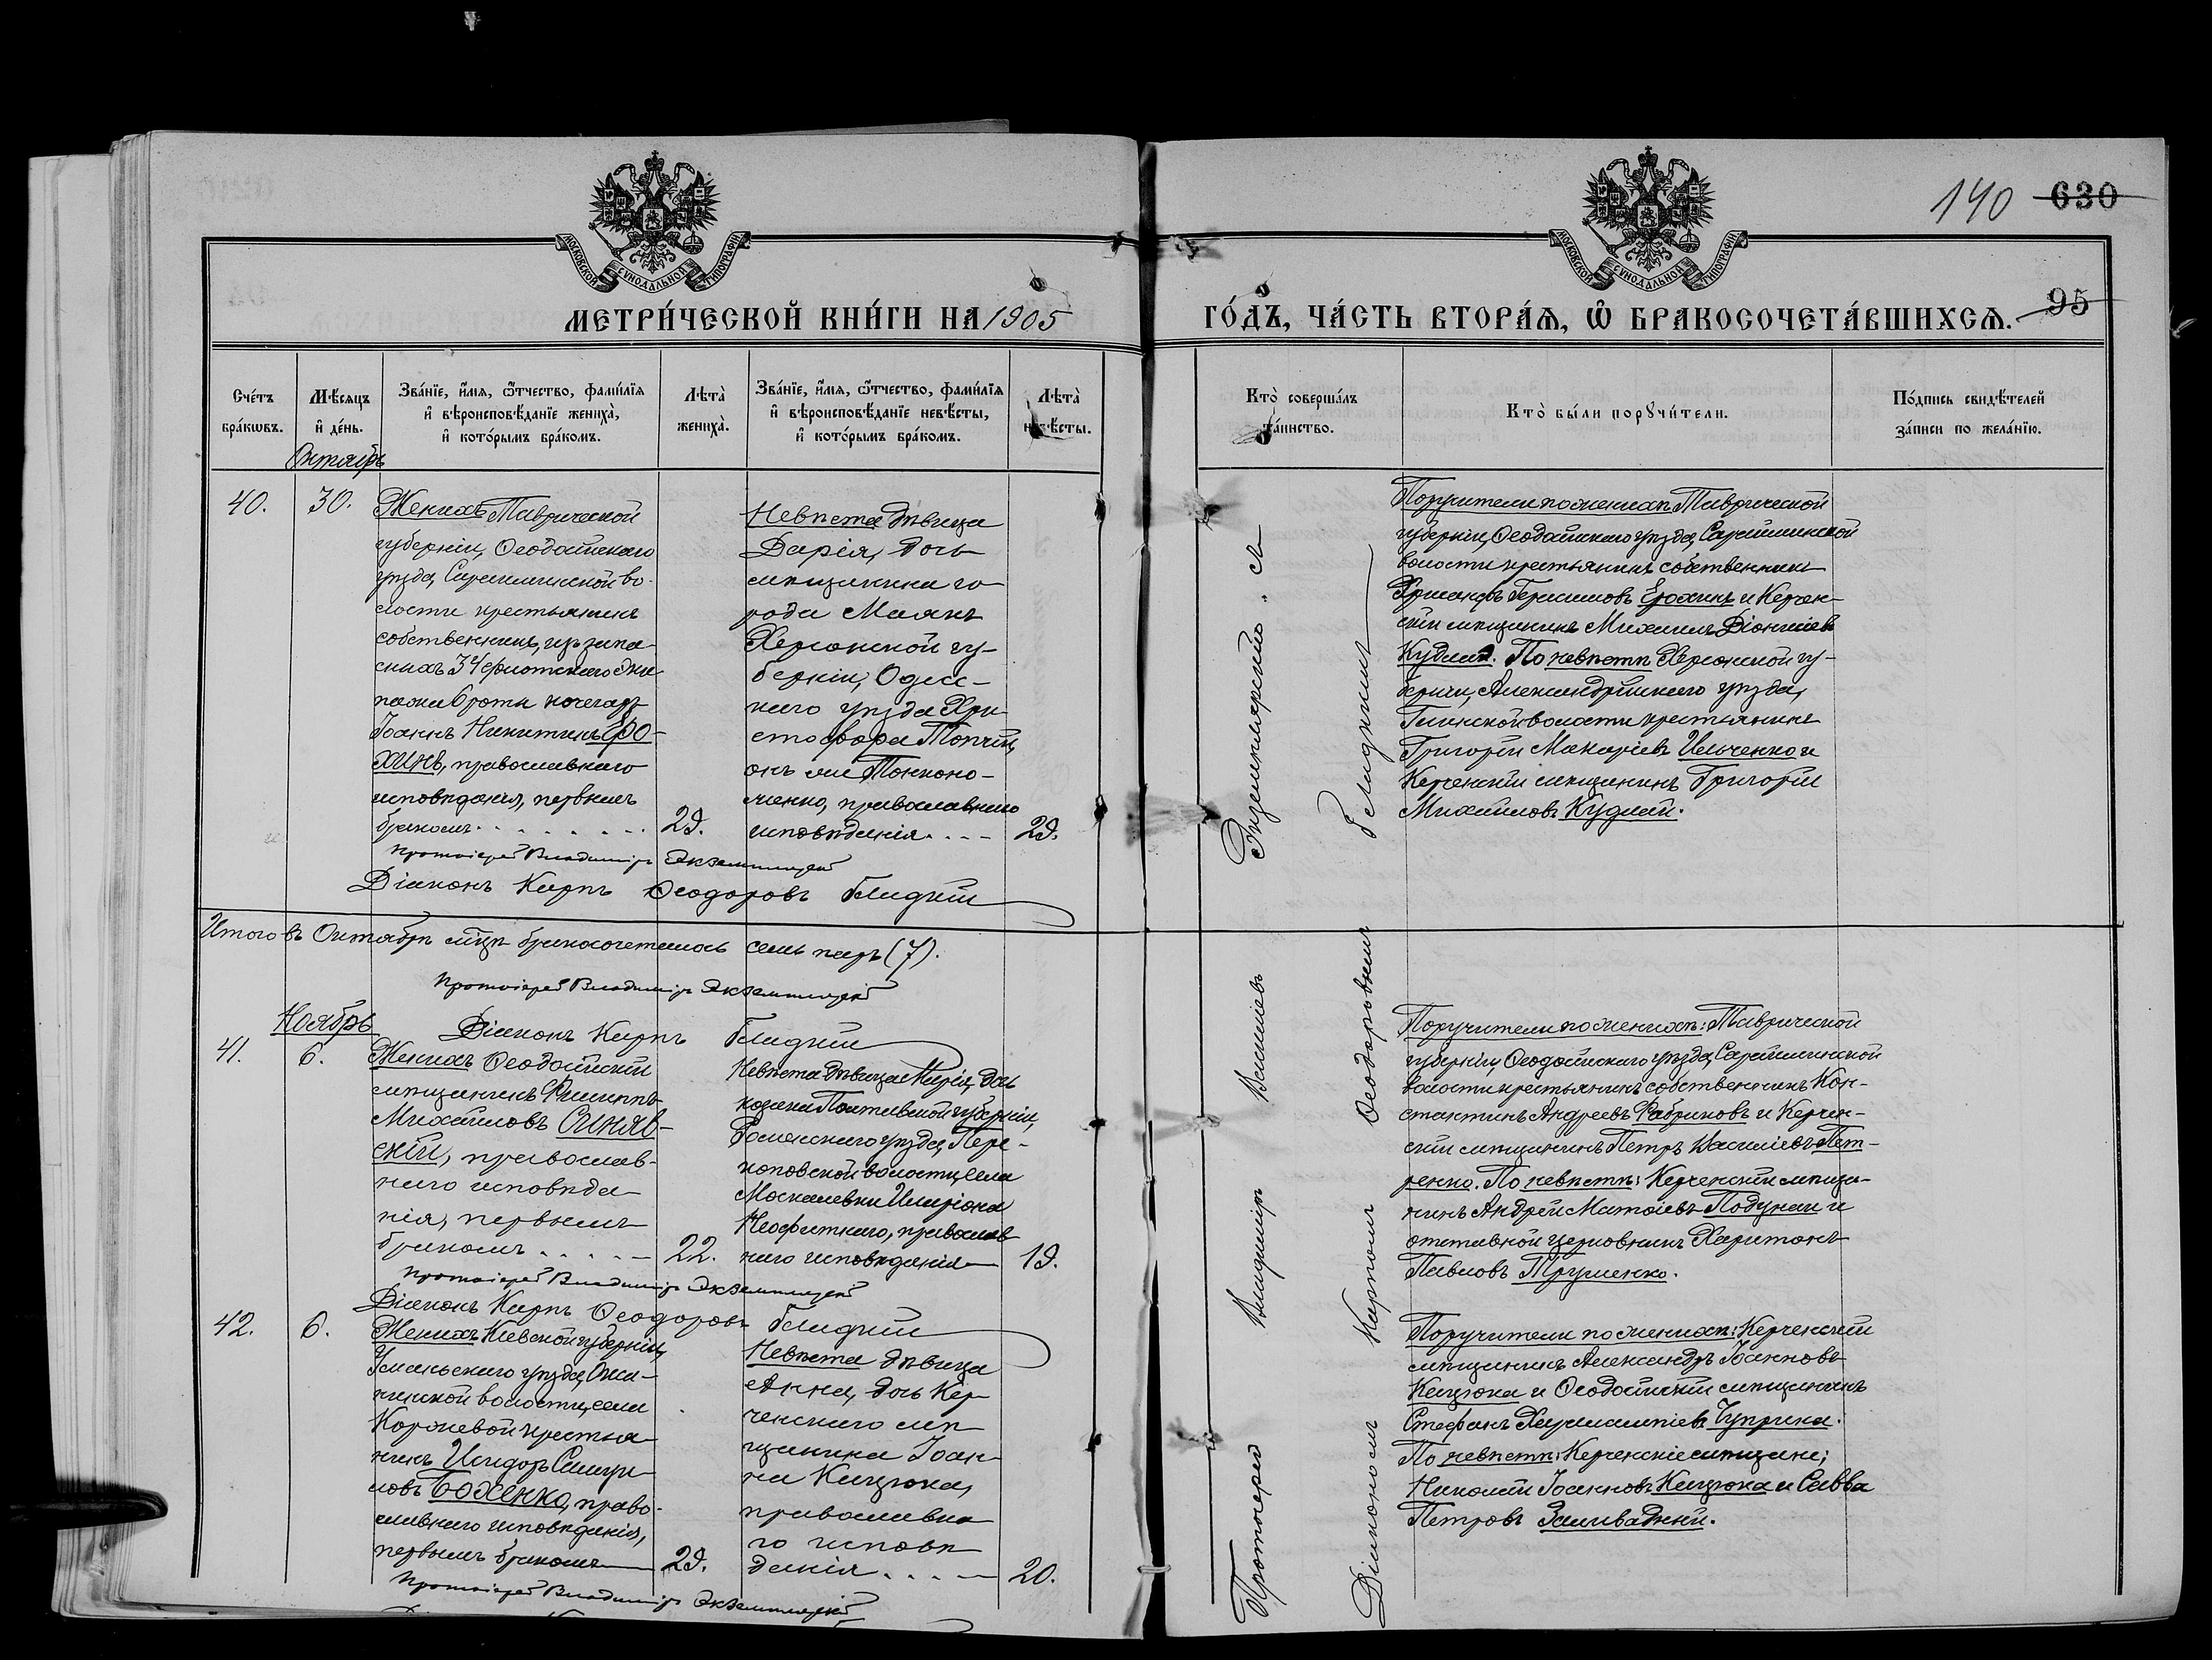 140 630
МОСКОВСКОЙ СѴНОДАЛЬНОЙ ТИПОГРАФІИ
МОСКОВСКОЙ СѴНОДАЛЬНОЙ ТИПОГРАФІИ
МЕТРИ́ЧЕСКОЙ КНИ́ГИ НА 1905
ГО́ДЪ, ЧА́СТЬ ВТОРА́Ѧ, Ѽ БРАКОСОЧЕТА́ВШИХСѦ. 95
Сче́тъ бра́кѡвъ.
Мѣ́сѧцъ и҆ де́нь.
Зва́нїе, и҆́мѧ, ѻ҆́тчество, фами́лїѧ и҆ вѣроисповѣ́данїе жениха̀, и҆ кото́рымъ бра́комъ.
Лѣ́та̀ жениха̀.
Зва́нїе, и҆́мѧ, ѻ҆́тчество, фами́лїѧ и҆ вѣроисповѣ́данїе невѣ́сты, и҆ кото́рымъ бра́комъ.
Лѣ́та̀ невѣ́сты.
Кто̀ соверша́лъ та́инство.
Кто̀ бы́ли порꙋчи́тели.
По́дпись свидѣ́телей за́писи по жела́нїю.
Октябрь
40.
30.
Женихъ Таврической
губерніи, Ѳеодосійскаго
уѣзда, Сарайминской во-
лости крестьянинъ
собственникъ, изъ запа-
сныхъ 34 флотскаго эки-
пажа 6 роты кочегаръ
Іоаннъ Никитинъ Еро-
хинъ, православнаго
исповѣданія, первымъ
бракомъ
29.
Невѣста дѣвица
Дарія, дочь
мѣщанина го-
рода Маякъ
Херсонской гу-
берніи, Одес-
скаго уѣзда Хри-
стофора Топчій,
онъ же Тонконо-
женко, православнаго
исповѣданія
29.
Протоіерей Владиміръ Экземплярскій
Діаконъ Карпъ Ѳеодоровъ Блидкій
Поручители по женихѣ: Таврической
губерніи, Ѳеодосійскаго уѣзда, Сарайминской
волости крестьянинъ собственникъ
Герасимовъ Ерохинъ и Керчен-
скій мѣщанинъ Михаилъ Діонисіевъ
Кудлай. По невѣстѣ Херсонской гу-
берніи, Александрійскаго уѣзда,
Глинской волости крестьянинъ
Григорій Макаріевъ Ильченко и
Керченскій мѣщанинъ Григорій
Михайловъ Кудлай.
Итого въ Октябрѣ мцѣ бракосочеталось семь паръ (7).
Протоіерей Владиміръ Экземплярскій
Діаконъ Карпъ Блидкій
Ноябрь
41.
6.
Женихъ Ѳеодосійскій
мѣщанинъ Филиппъ
Михайловъ Синяв-
скій, православ-
наго исповѣда-
нія, первымъ
бракомъ
22.
Невѣста дѣвица Марія, дочь
козака Полтавской губерніи,
Роменскаго уѣзда, Пере-
коповской волости, села
Москалевки Иларіона
Неофитнаго, православ
наго исповѣданія
19.
Протоіерей Владиміръ Экземплярскій
Діаконъ Карпъ Ѳеодоровъ Блидкій
Поручители по женихѣ: Таврической
губерніи, Ѳеодосійскаго уѣзда, Сарайминской
волости крестьянинъ собственникъ Кон-
стантинъ Андреевъ Фабриковъ и Керчен-
скій мѣщанинъ Петръ Василіевъ Пет-
ренко. По невѣстѣ: Керченскій мѣща-
нинъ Андрей Матѳіевъ Подунай и
отставной церковникъ Харитонъ
Павловъ Трушенко.
42.
6.
Женихъ Кіевской губерніи,
Уманьскаго уѣзда,
волости, села
Коржевой крестья-
нинъ Исидоръ Самуи-
ловъ Боженко, право-
славнаго исповѣданія,
первымъ бракомъ
29.
Невѣста дѣвица
Анна, дочь Кер-
ченскаго мѣ-
щанина Іоан-
на Кацюка,
православна
го исповѣ
данія
20.
Протоіерей Владиміръ Экземплярскій
Поручители по женихѣ: Керченскій
мѣщанинъ Александръ Іоанновъ
Кацюка и Ѳеодосійскій мѣщанинъ
Стефанъ Харлампіевъ Чуприна.
По невѣстѣ: Керченскіе мѣщане;
Николай Іоанновъ Кацюка и Савва
Петровъ Заливадный.
Протоіерей Владиміръ Василіевъ Экземплярскій съ
Діакономъ Карпомъ Ѳеодоровымъ Блидкимъ